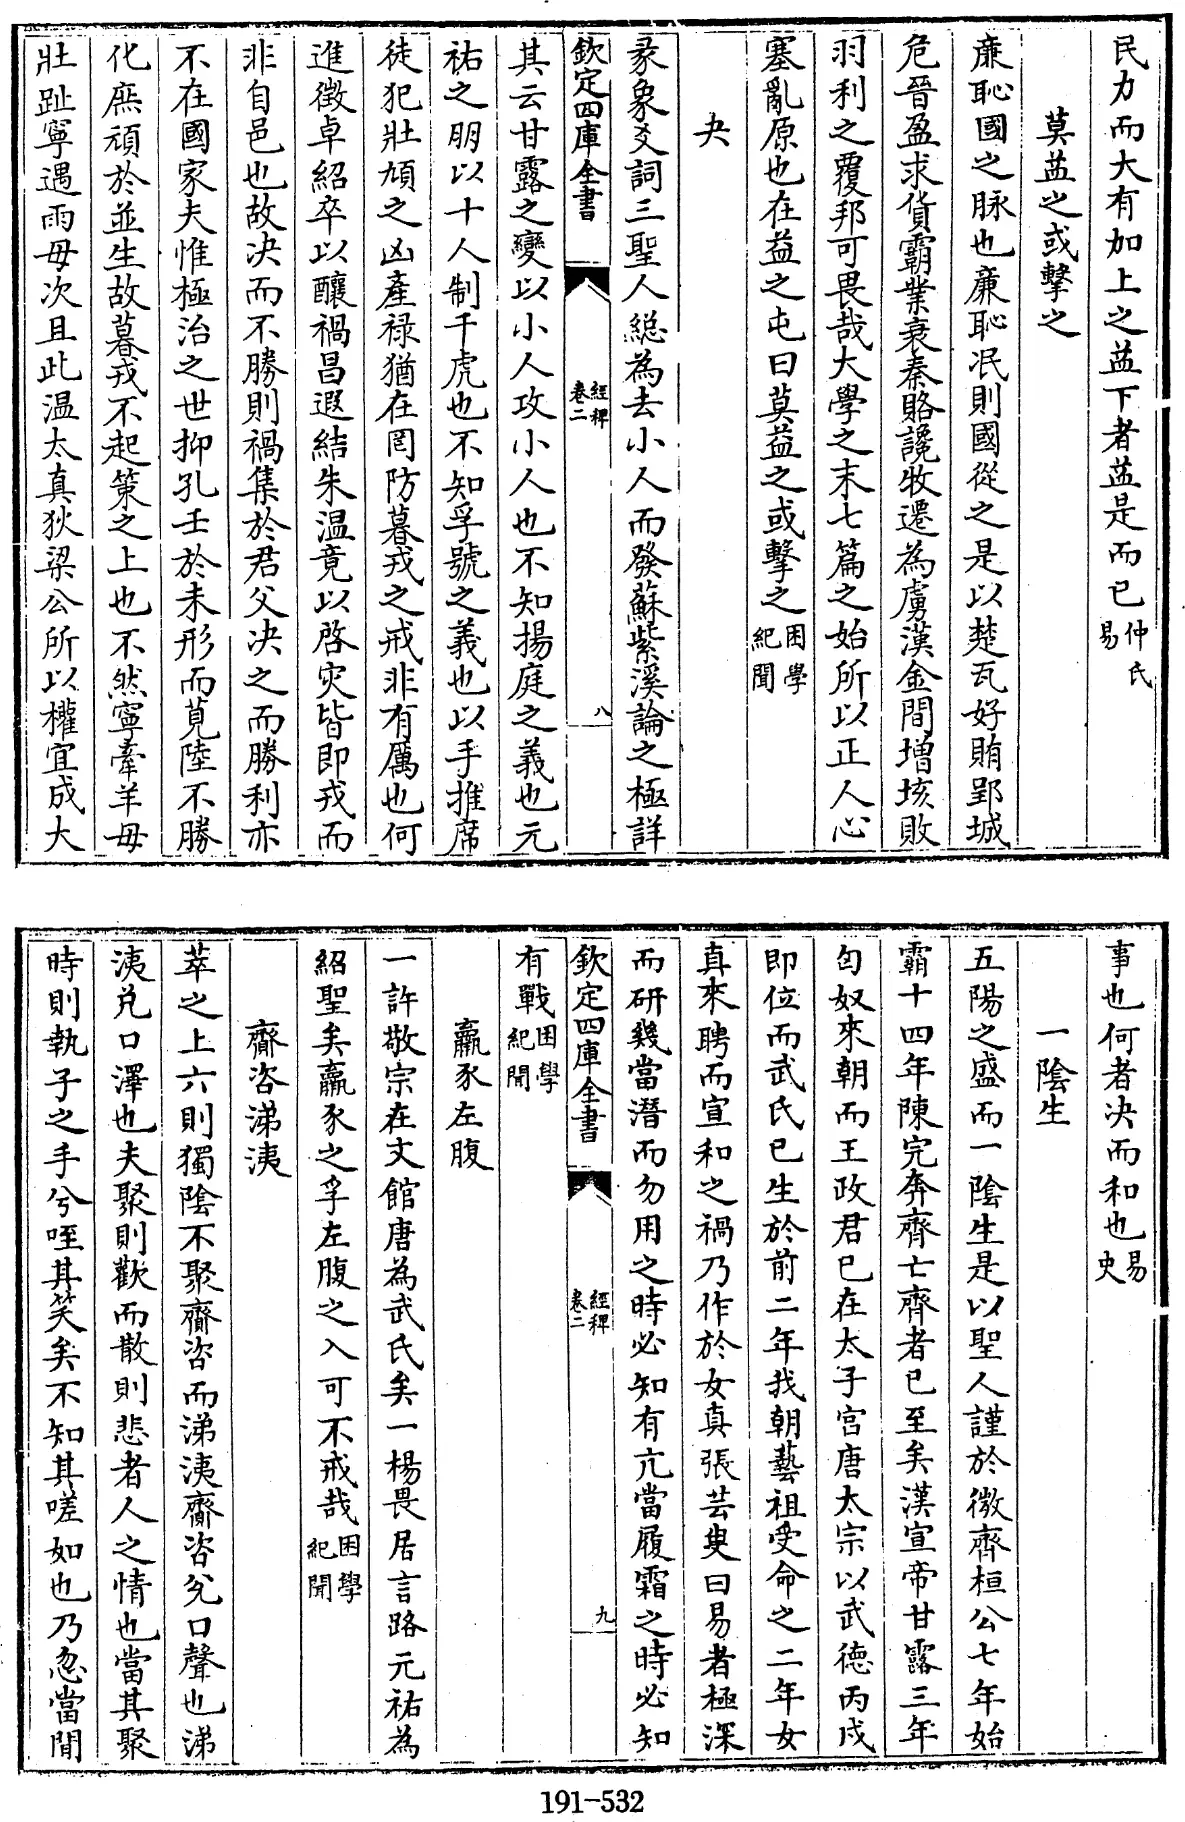 民力而大有加上之益下者益是而已仲氏易
莫益之或擊之
廉恥國之脉也廉恥泯則國從之是以楚瓦好賄郢城
危晉盈求貨霸業衰秦賂讒牧遷為虜漢金間增垓敗
羽利之覆邦可畏哉大學之末七篇之始所以正人心
塞亂原也在益之屯曰莫益之或擊之困學紀聞
夬
彖象爻詞三聖人總為去小人而發蘇紫溪論之極詳
欽定四庫全書
經稗
卷二
八
其云甘露之變以小人攻小人也不知揚庭之義也元
祐之朋以十人制千虎也不知孚號之義也以手推席
徒犯壯頄之凶產禄猶在罔防暮戎之戒非有厲也何
進徵卓紹卒以釀禍昌遐結朱温竟以啓災皆即戎而
非自邑也故决而不勝則禍集於君父决之而勝利亦
不在國家夫惟極治之世抑孔壬於未形而莧陸不勝
化庶頑於並生故暮戎不起策之上也不然寧牽羊毋
壯趾寧遇雨毋次且此温太真狄梁公所以權宜成大
事也何者决而和也易史
一陰生
五陽之盛而一陰生是以聖人謹於微齊桓公七年始
霸十四年陳完奔齊亡齊者已至矣漢宣帝甘露三年
匈奴來朝而王政君已在太子宫唐太宗以武德丙戌
即位而武氏已生於前二年我朝藝祖受命之二年女
真來聘而宣和之禍乃作於女真張芸叟曰易者極深
而研幾當潛而勿用之時必知有亢當履霜之時必知
欽定四庫全書
經稗
卷二
九
有戰困學紀聞
羸豕左腹
一許敬宗在文館唐為武氏矣一楊畏居言路元祐為
紹聖矣羸豕之孚左腹之入可不戒哉困學紀聞
齎咨涕洟
萃之上六則獨陰不聚齎咨而涕洟齎咨兌口聲也涕
洟兌口澤也夫聚則歡而散則悲者人之情也當其聚
時則執子之手兮咥其笑矣不知其嗟如也乃忽當間
191-532